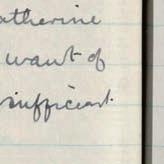 atherine
want of
sufficient.